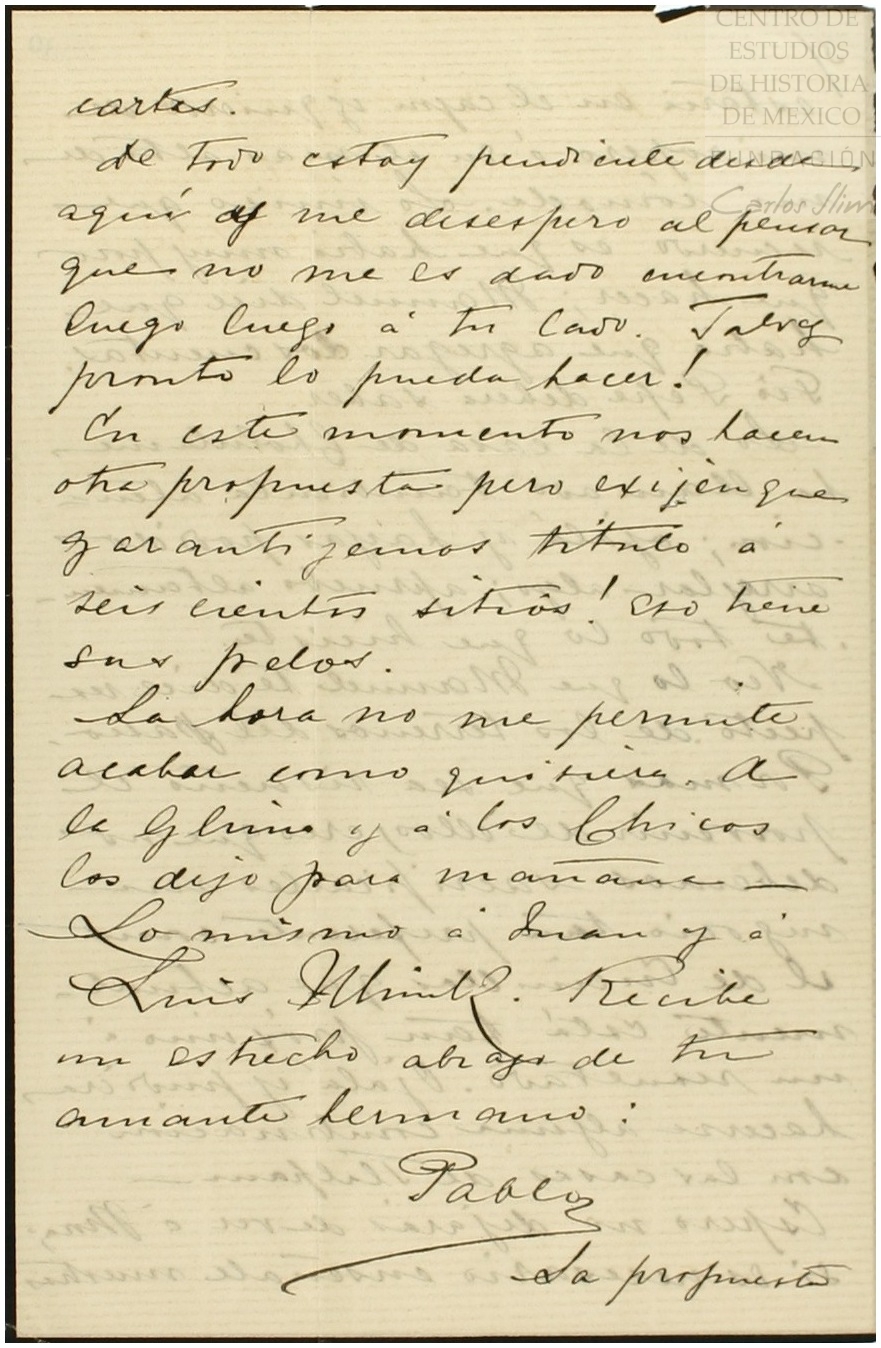 CENTRO DE
ESTUDIOS
DE HISTORIA
DE MEXICO
FUNDACIÓN
Carlos Slim
cartas.
De todo estoy pendiente desde
aquí y me desespero al pensar
que no me es dado encontrarme
luego luego á tu lado. Talvez
pronto lo pueda hacer!
En este momento nos hacen
otra propuesta pero exijen que
garantizemos título á
seis cientos sitios! eso tiene
sus pelos.
La hora no me permite
acabar como quisiera. A
la y á los Chicos
los dejo para mañana —
Lo mismo á Juan y á
Luis. Recibe
un estrecho abrazo de tu
amante hermano:
Pablo
La propuesta